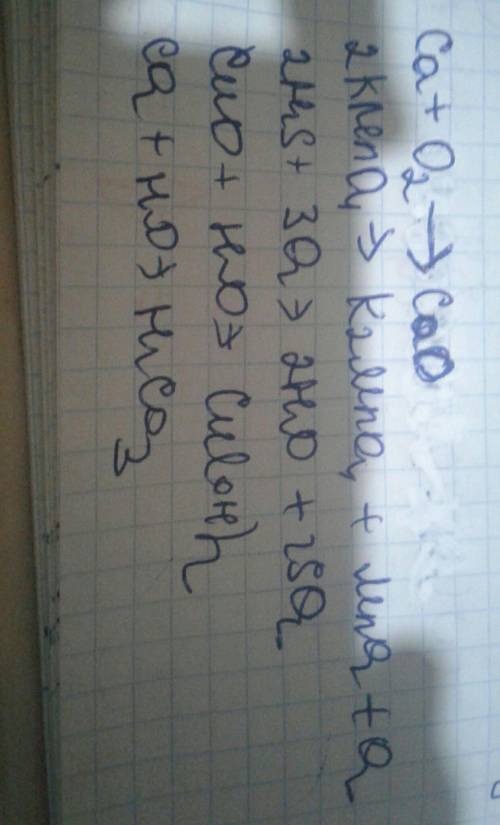 Ca + O₂ → CaO
2KMnO₄ → K₂MnO₄ + MnO₂ + O₂
2H₂S + 3O₂ → 2H₂O + 2SO₂
CuO + H₂O → Cu(OH)₂
CO₂ + H₂O → H₂CO₃